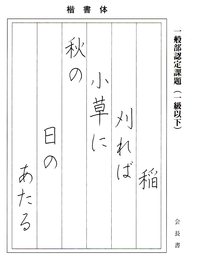 楷書体
一般部認定課題（一級以下）
会長書
稲
刈れば
小草に
秋の
日の
あたる